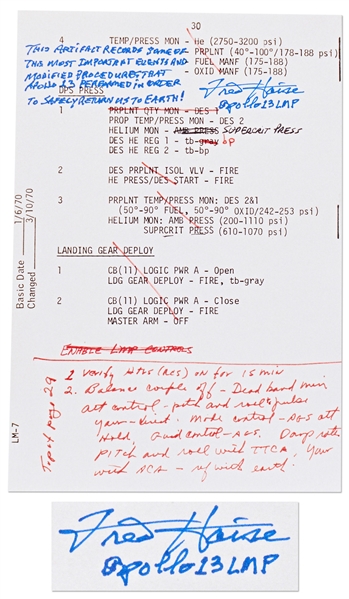 30
4 TEMP/PRESS MON - He (2750-3200 psi)
PRPLNT (40°-100°/178-188 psi)
FUEL MANF (175-188)
OXID MANF (175-188)
THIS ARTIFACT RECORDS SOME OF
THE MOST IMPORTANT EVENTS AND
MODIFIED PROCEDURES THAT
APOLLO 13 PERFORMED IN ORDER
TO SAFELY RETURN US TO EARTH!
Fred Haise
Apollo 13 LMP
DPS PRESS
1 PRPLNT QTY MON - DES 1
PROP TEMP/PRESS MON - DES 2
HELIUM MON - AMB PRESS SUPERCRIT PRESS
DES HE REG 1 - tb-gray bp
DES HE REG 2 - tb-bp
2 DES PRPLNT ISOL VLV - FIRE
HE PRESS/DES START - FIRE
3 PRPLNT TEMP/PRESS MON: DES 2&1
(50°-90° FUEL, 50°-90° OXID/242-253 psi)
HELIUM MON: AMB PRESS (200-1110 psi)
SUPRCRIT PRESS (610-1070 psi)
LANDING GEAR DEPLOY
1 CB(11) LOGIC PWR A - Open
LDG GEAR DEPLOY - FIRE, tb-gray
2 CB(11) LOGIC PWR A - Close
LDG GEAR DEPLOY - FIRE
MASTER ARM - OFF
Basic Date 1/6/70
Changed 3/10/70
LM-7
ENABLE LMP CONTROLS
1 Verify HTRS (RCS) on for 15 min
2. Balance couple off - Dead band min
att control - pitch and roll pulse
yaw - . Mode control - AGS att
Hold, Guid control - AGS. Damp rates
PITCH and roll with TTCA, Yaw
with ACA - with earth.
Top of page 29
Fred Haise
Apollo 13 LMP